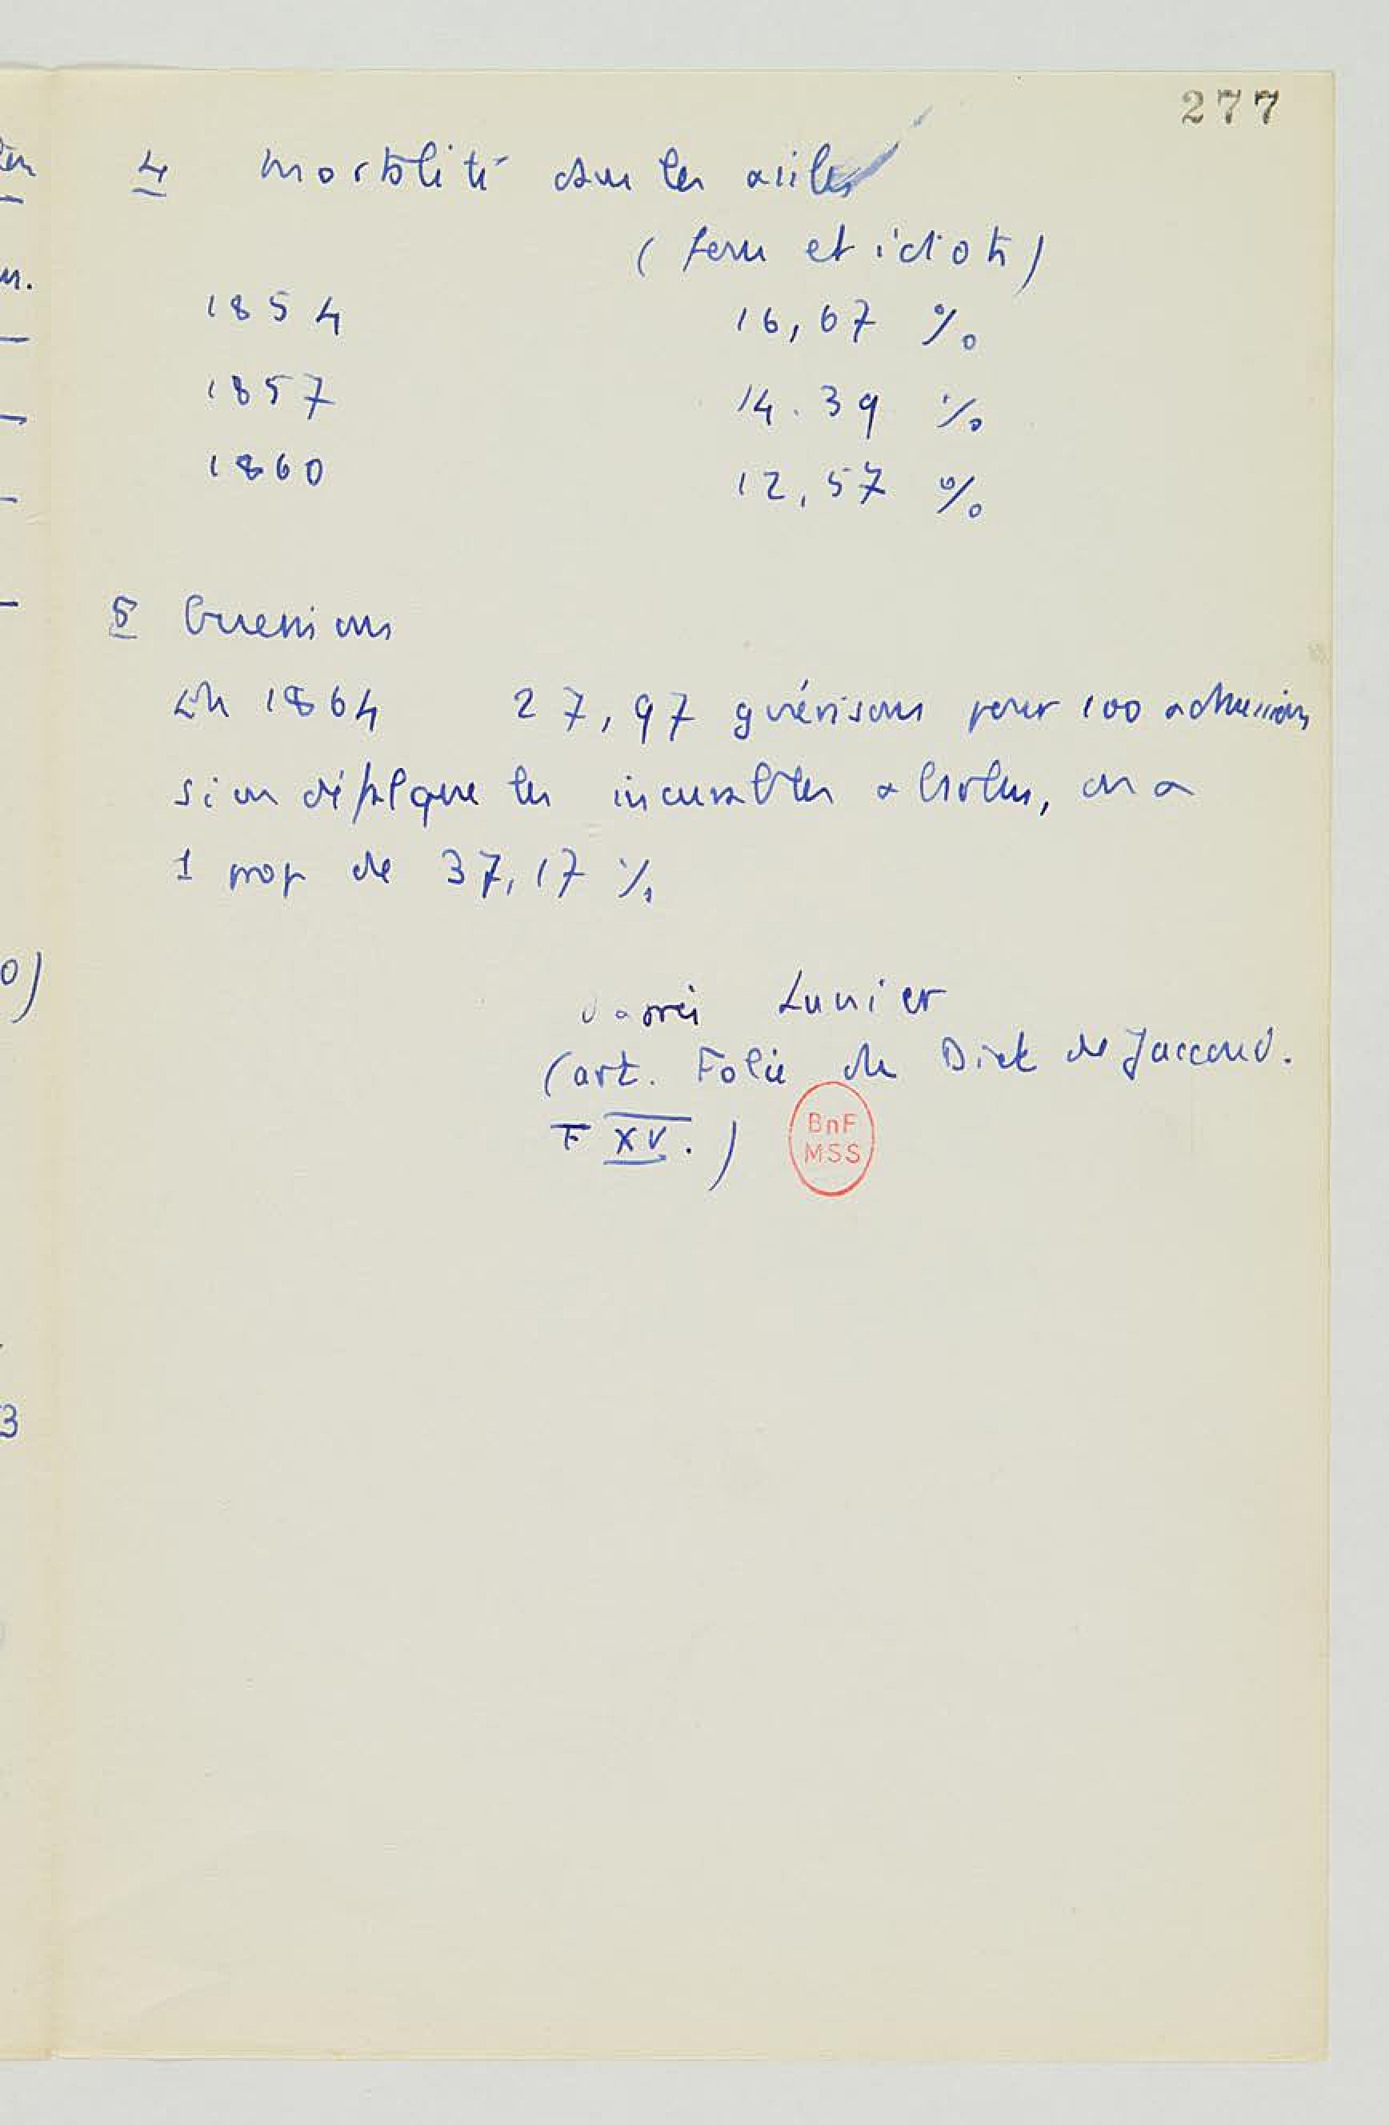 277
4 Mortalité dans les asiles
(fous et idiots)
1854 16,67 %
1857 14.39 %
1860 12,57 %
5 Guérisons
En 1864 27,97 guérisons pour 100 admissions
si on défalque les incurables absolus, on a
1 prop de 37,17 %
d'après Lunier
(art. Folie du Dict de Jaccoud.
T XV.)
BnF
MSS